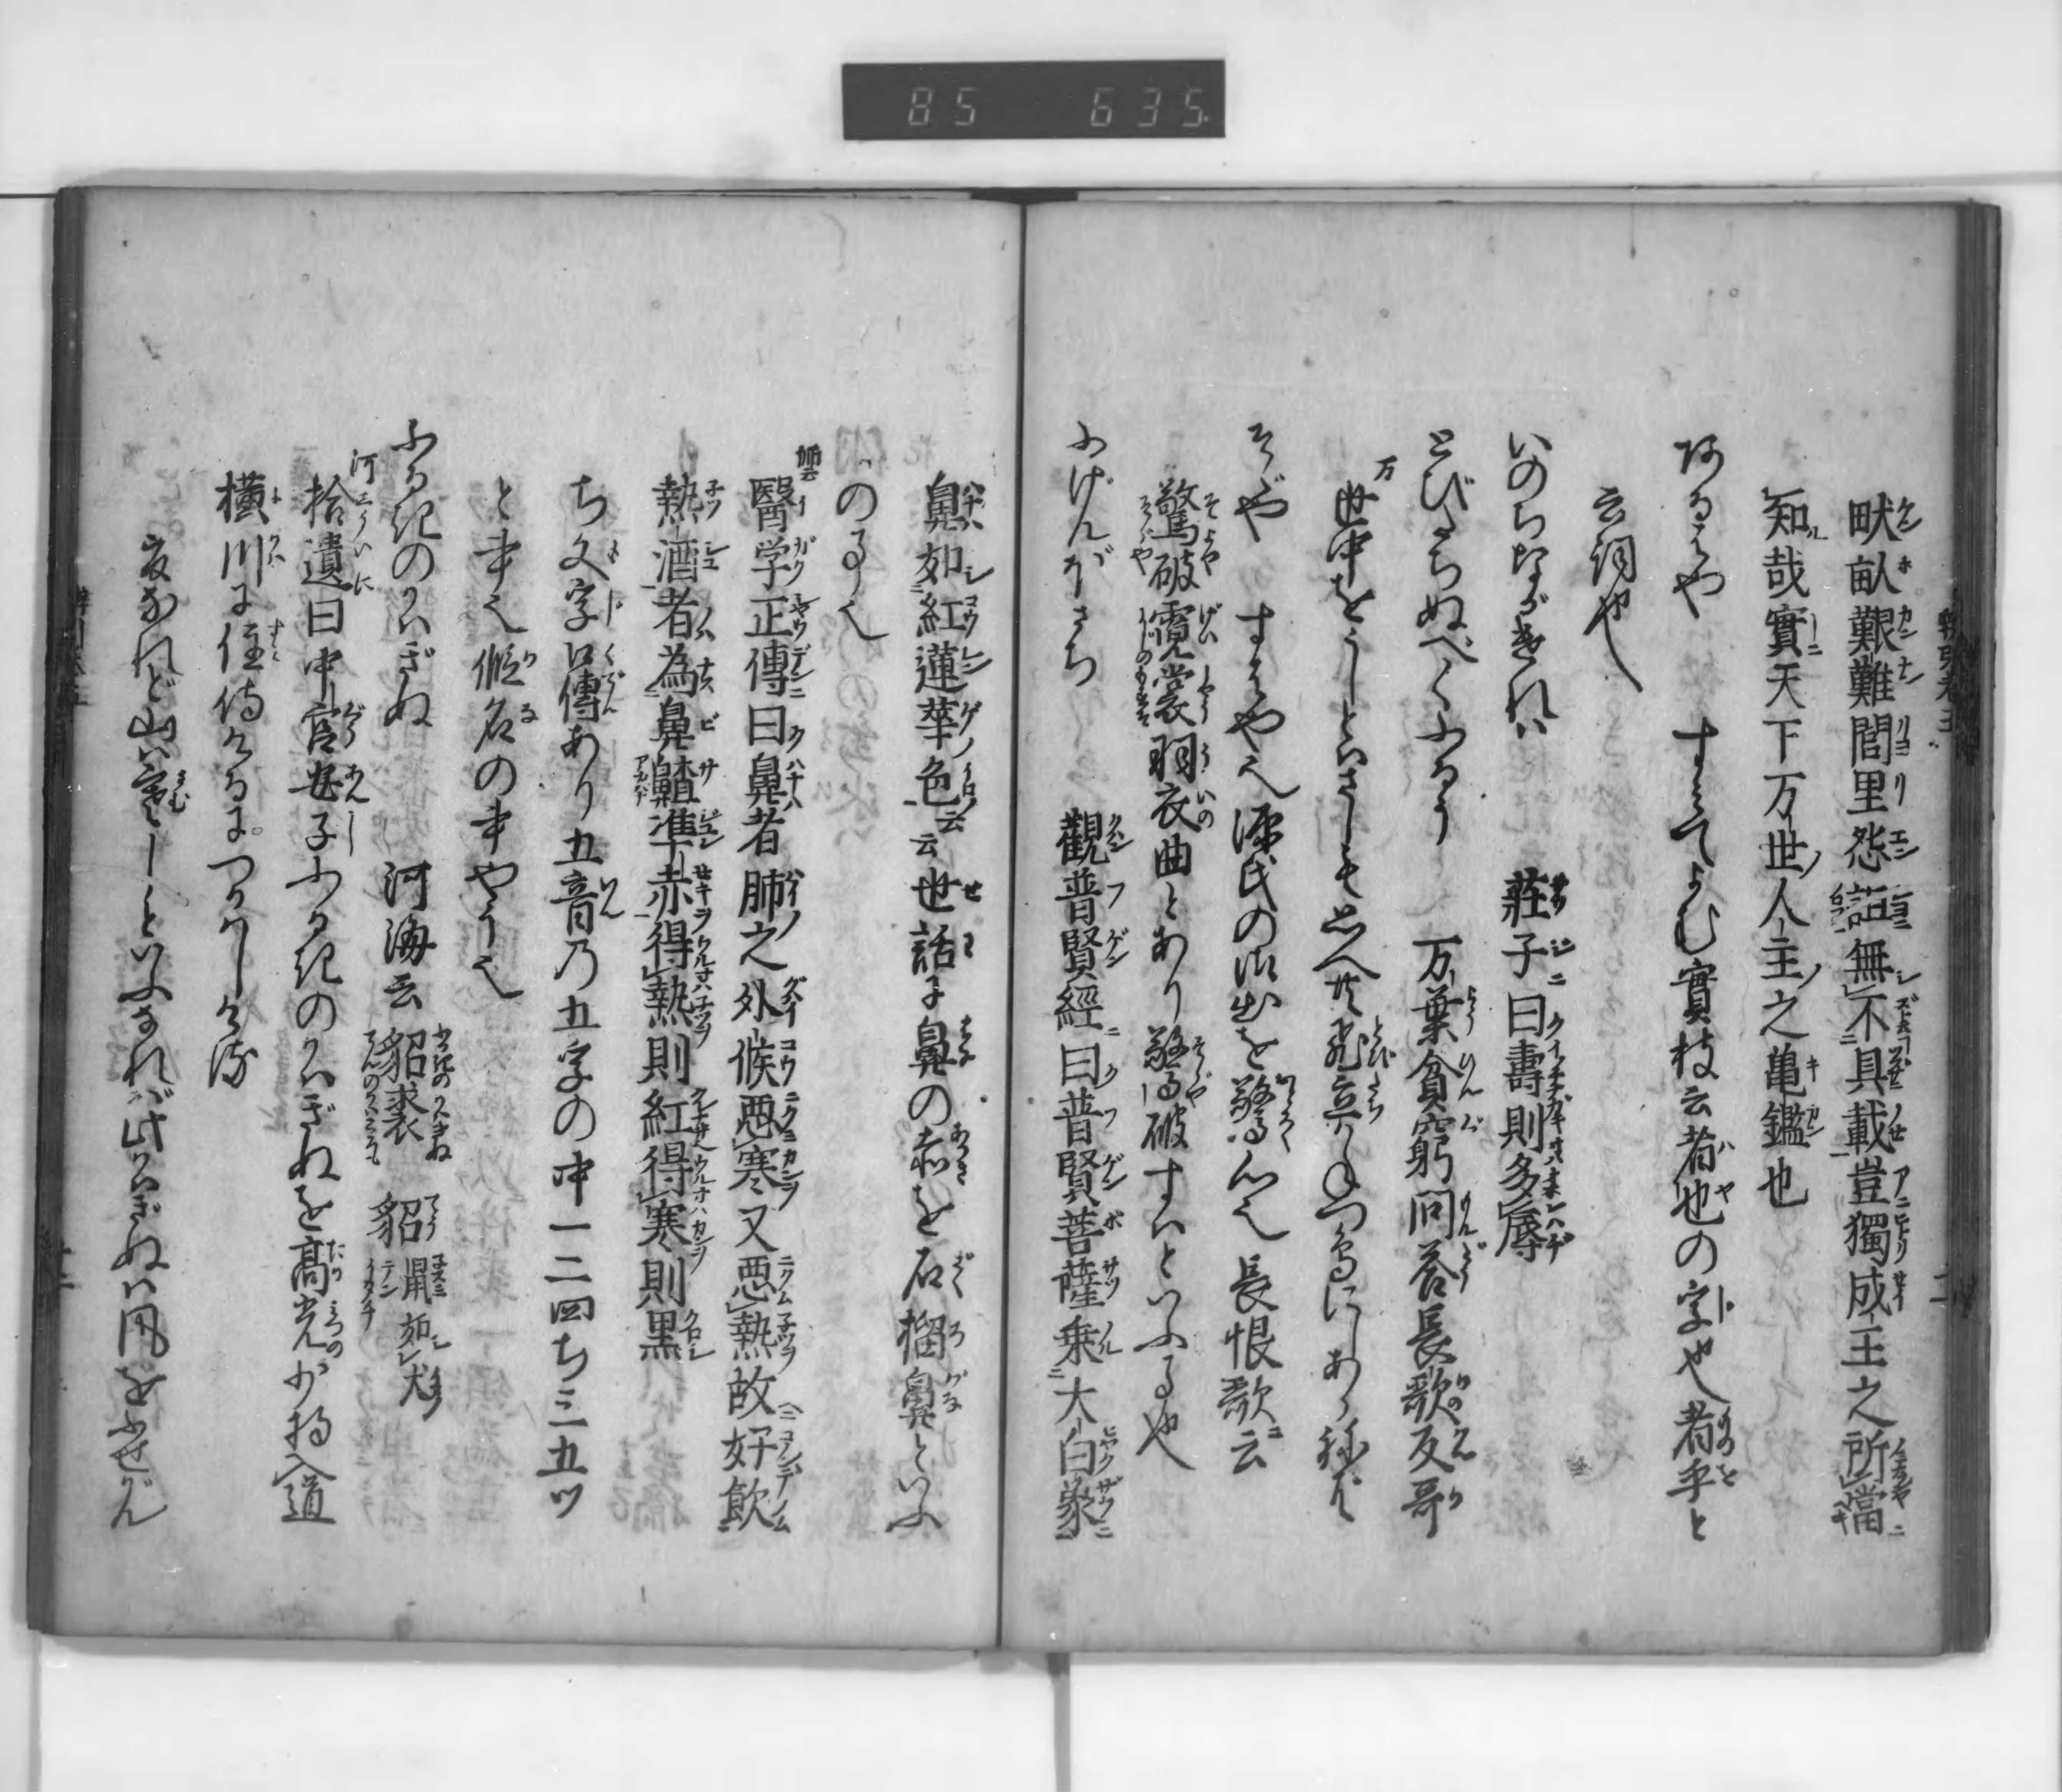 85 635
畎畝艱難閭里怨詛無不具載豈獨成王之所當
知哉實天下万世人主之亀鑑也
すみてよむ實枝云者也の字也者乎と
云詞也
いのちながきれハ 莊子曰壽則多辱
とびたちぬべくふるう 万葉貧窮問答長哥反哥
万
世中をうしとやさしと思へ共飛立かねつ鳥にしあらねば
そゞや すはや也源氏の御出を驚く心也 長恨歌云
驚破霓裳羽衣曲とあり驚破すはといふ事也
ふげんぼさち 觀普賢經曰普賢菩薩乗大白象
鼻如紅蓮華色云云世話に鼻の赤を石榴鼻といふ
の事也
師云
醫学正傳曰鼻者肺之外候悪寒又悪熱故好飲
熱酒者為鼻齄準赤得熱則紅得寒則黒
ち文字口傳あり五音乃五字の中一二四ち三五ツ
と申也假名の事やう也
ふるきのかはぎぬ 河海云 貂裘 貂 鼠如犬
河
拾遺曰中宮安子ふるきのかはぎぬを高光少将入道
横川に住侍けるにつかはしける
夏なれど山は寒しといふなれば此かはぎぬハ風をふせがん